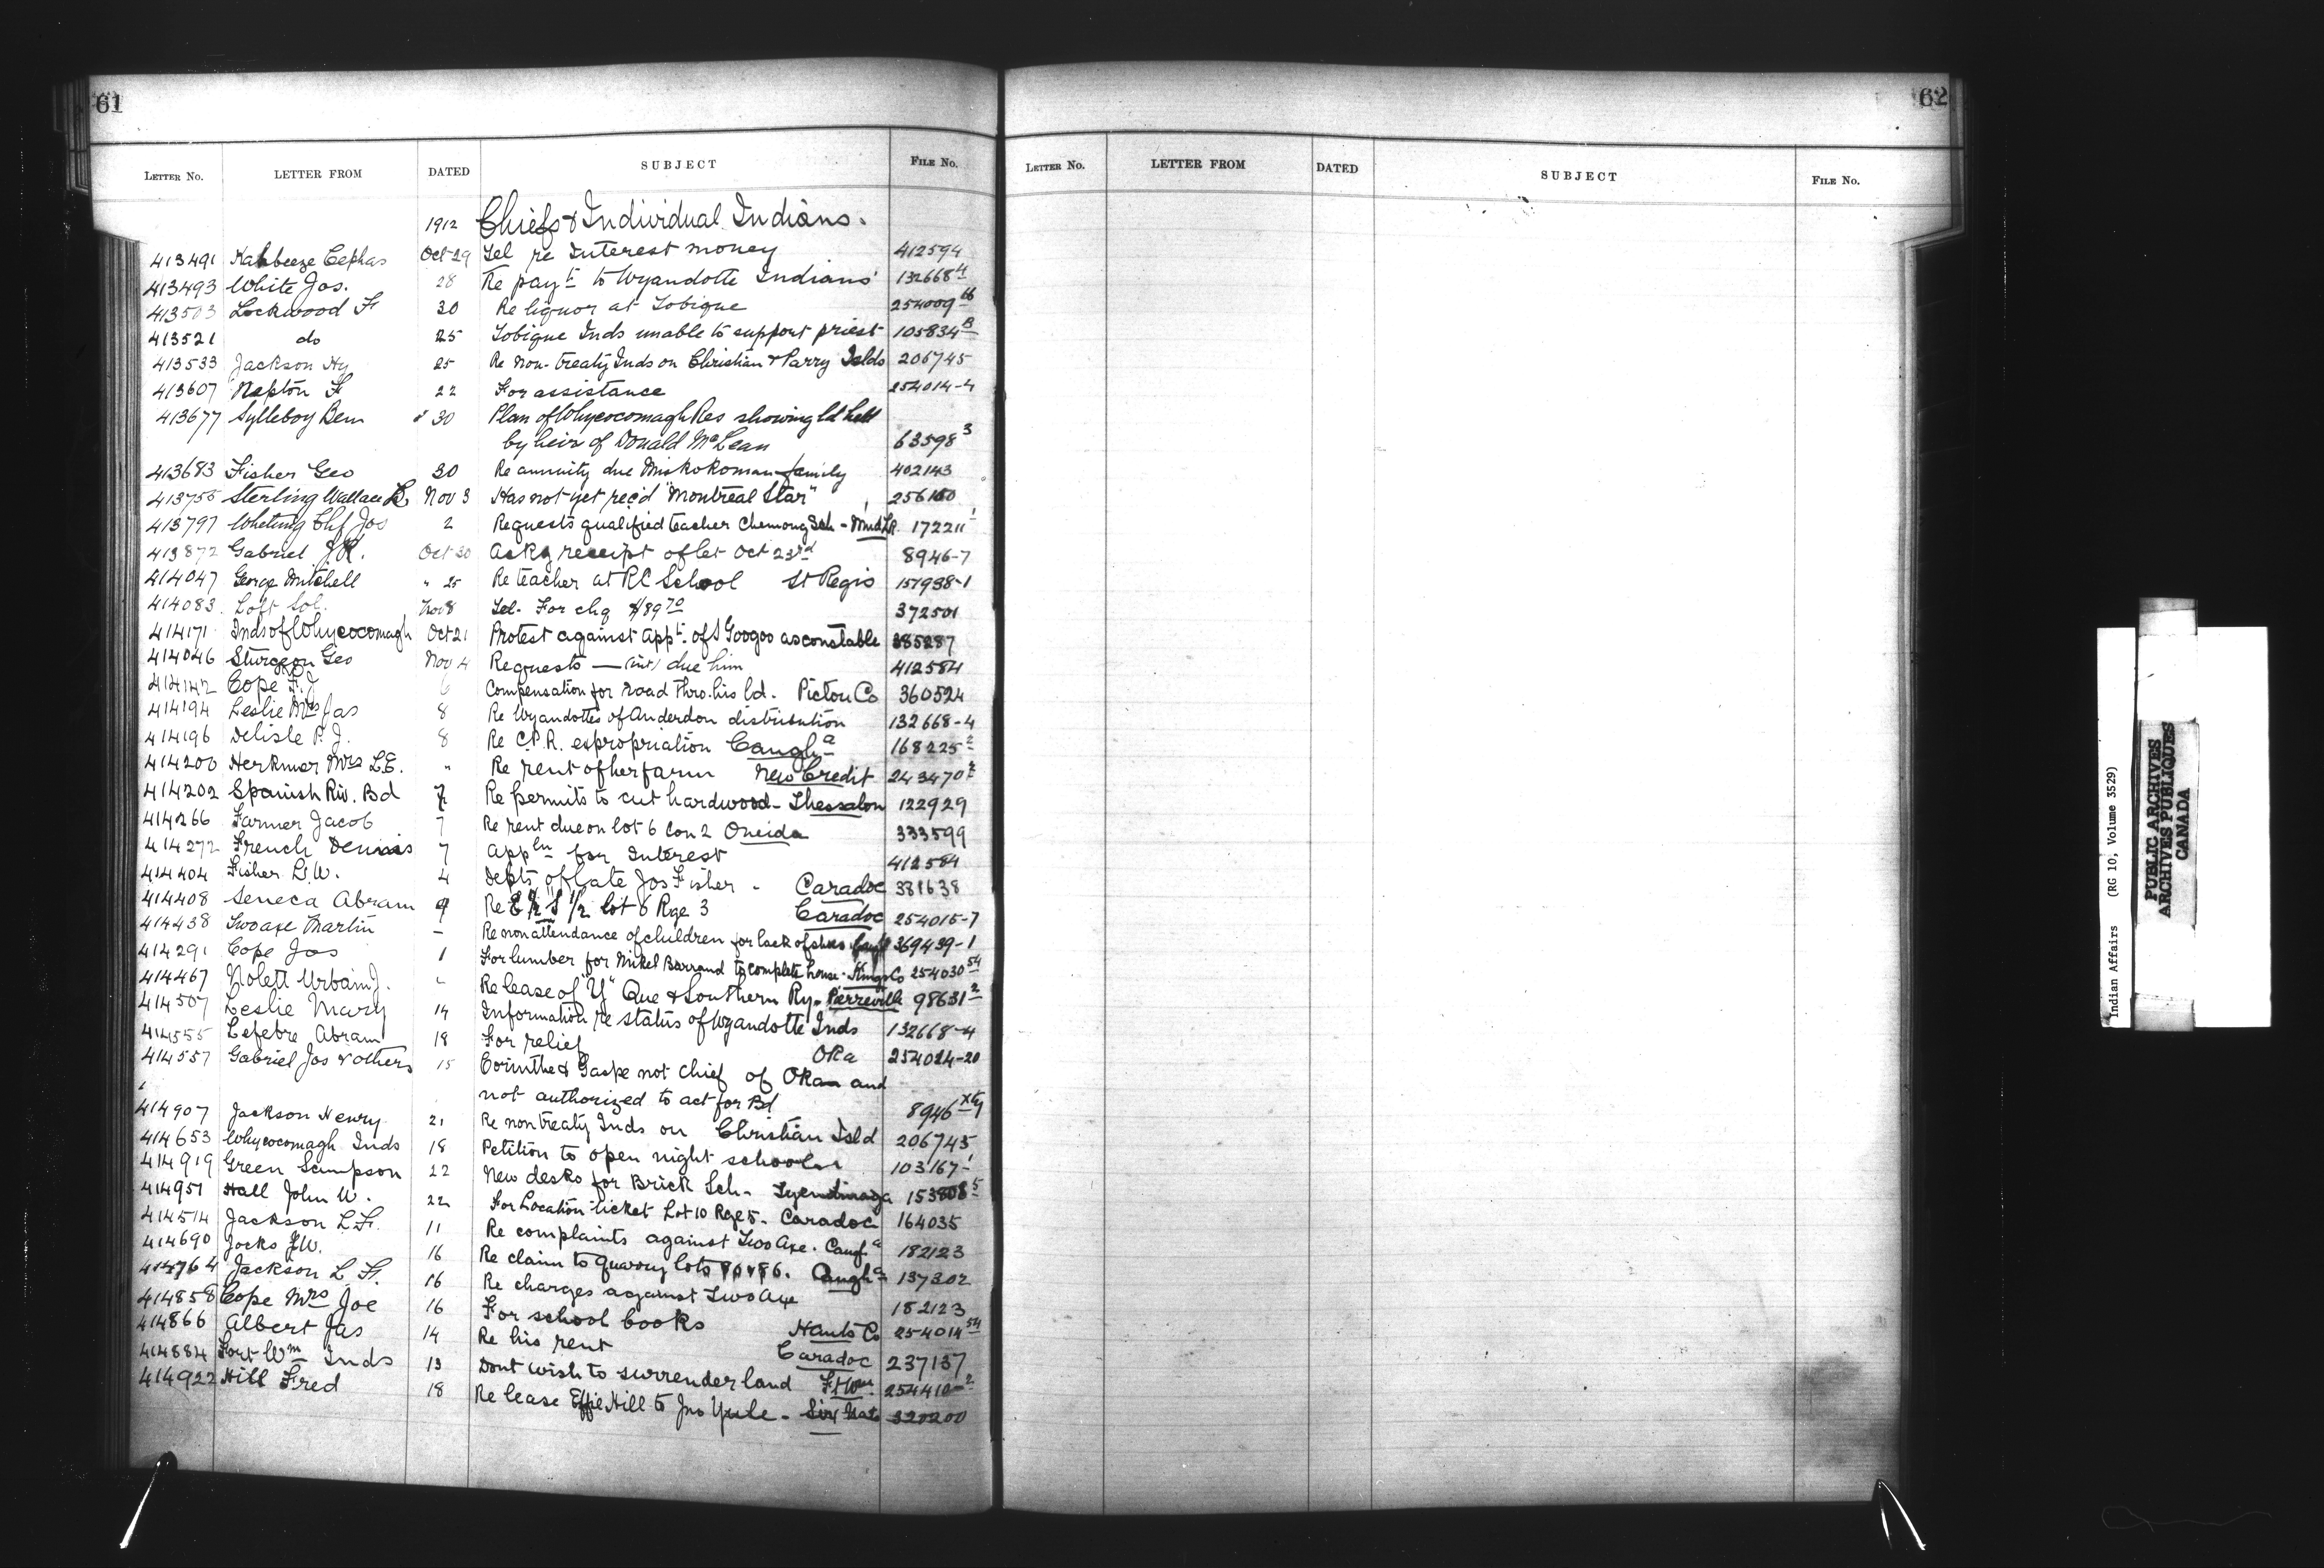 61
LETTER No. LETTER FROM DATED SUBJECT FILE No.
1912 Chiefs & Individual Indians.
413491 Kahbeeze Cephas Oct 29 Tel re Interest money 412594
413493 White Jos. 28 Re payt to Wyandotte Indians 132668-4
413503 Lockwood F 30 Re liquor at Tobique 254009-66
413521 do 25 Tobique Inds unable to support priest 105834 B
413533 Jackson Hy 25 Re Non-treaty Inds on Christian & Parry Islds 206745
413607 Nepton F 22 For assistance 254014-4
413677 Sylleboy Ben " 30 Plan of Whycocomagh Res showing ld held
by heir of Donald McLean 63598 3
413683 Fisher Geo 30 Re annuity due Miskokoman family 402143
413755 Sterling Wallace Nov 3 Has not yet rec'd "Montreal Star" 256100
413797 Whetung Chf Jos 2 Requests qualified teacher Chemong Sch - Mud L R. 172211
413872 Gabriel J.K. Oct 30 Ackg receipt of let Oct 23rd 8946-7
414047 George Mitchell " 25 Re teacher at RC School St Regis 157938-1
414083 Loft Sol. Nov 8 Tel. For chq $189 70 372501
414171 Inds of Whycocomagh Oct 21 Protest against appt. of J Googoo as constable 385287
414046 Sturgeon Geo Nov 4 Requests — (int) due him 412584
414142 Cope F.J 6 Compensation for road thro. his ld. Pictou Co 360524
414194 Leslie Mrs Jas 8 Re Wyandottes of Anderdon distribution 132668-4
414196 Delisle P.J. 8 Re C.P.R. expropriation Caugha 168225 2
414200 Herkmer Mrs L.E. " Re rent of her farm New Credit 243470 2
414202 Spanish Riv. Bd 7 Re permits to cut hardwood - Thessalon 122929
414266 Farmer Jacob 7 Re rent due on lot 6 Con 2 Oneida 333599
414272 French Dennis 7 Appln for Interest 412584
414404 Fisher L.W. 4 Debts of late Jos Fisher - Caradoc 381638
414408 Seneca Abram 9 Re E 1/2 S 1/2 lot 6 Rge 3 Caradoc 254015-7
414438 Twoaxe Martin - Re non attendance of children for lack of shoes 369439-1
414291 Cope Jos 1 For lumber for Mikel Barrand to complete house. Kings Co 254030 54
414467 Nolett Urbain J. " Re lease of "Y" Que & Southern Ry. Pierreville 98631 2
414507 Leslie Mary 14 Information re status of Wyandotte Inds 132668-4
414555 Lefebre Abram 18 For relief Oka 254024-20
414557 Gabriel Jos & others 15 Corinthe & Gaspe not chief of Oka and
not authorized to act for Bd 8946
414907 Jackson Henry 21 Re non treaty Inds on Christian Isld 206745
414653 Whycocomagh Inds 18 Petition to open night school 103167-1
414919 Green Sampson 22 New desks for Brick Sch. Tyendinaga 153808 5
414951 Hall John W. 22 For Location ticket Lot 10 Rge 5. Caradoc 164035
414514 Jackson L.F. 11 Re complaints against Two Axe. Cauga 182123
414690 Jocks J.W. 16 Re claim to quarry lots . Caugha 137302
414764 Jackson L F. 16 Re charges against Two Axe 182123
414858 Cope Mrs Joe 16 For school books Hants Co 254014 54
414866 Albert Jas 14 Re his rent Caradoc 237137
414884 Fort Wm Inds 13 Dont wish to surrender land Ft Wm. 254410-2
414922 Hill Fred 18 Re lease Effie Hill to Jno Yuele - Six Nats 320200
62
LETTER No. LETTER FROM DATED SUBJECT FILE No.
Indian Affairs (RG 10, Volume 3529)
PUBLIC ARCHIVES
ARCHIVES PUBLIQUES
CANADA